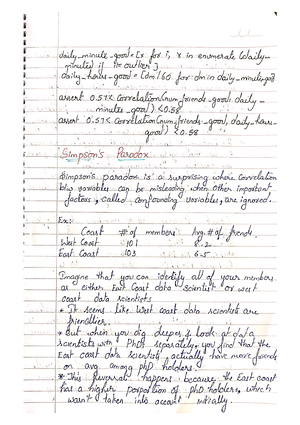 daily_minute_good = [x for i, x in enumerate (daily_
minutes) if i != outlier]
daily_hours_good = [dm/60 for dm in daily_minute_good]
assert 0.57 < correlation(num_friends_good, daily_
minutes_good) < 0.58
assert 0.57 < correlation(num_friends_good, daily_hours_
good) < 0.58
Simpson's Paradox
Simpson's paradox is a surprising where correlation
b/w variables can be misleading when other important
factors, called confounding variables, are ignored.
Ex:-
Coast # of members Avg. # of friends
West Coast 101 8.2
East Coast 103 6.5
Imagine that you can identify all of your members
as either East Coast data scientist or west
coast data scientists
* It seems like West coast data scientists are
friendlier.
* But when you dig deeper & look at data
scientists with PhDs separately, you find that the
East coast data scientists actually have more friends
on avg among PhD holders.
* This reversal happens because the East coast
has a higher proportion of PhD holders, which
wasn't taken into account initially.